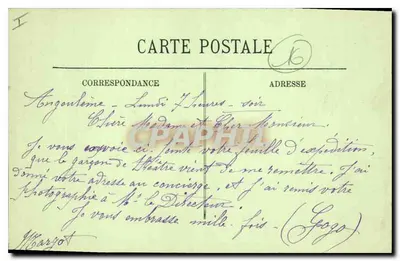 I
16
CARTE POSTALE
CORRESPONDANCE
ADRESSE
Angoulême - Lundi 7 heures - soir
Chère Madame et Cher Monsieur.
Je vous envoie ci-joint votre feuille d'expédition,
que le garçon de théâtre vient de me remettre. J'ai
donné votre adresse au concierge, et j'ai remis votre
photographie à Mr le Directeur.
Je vous embrasse mille fois - (Gogo)
CPAPHIL